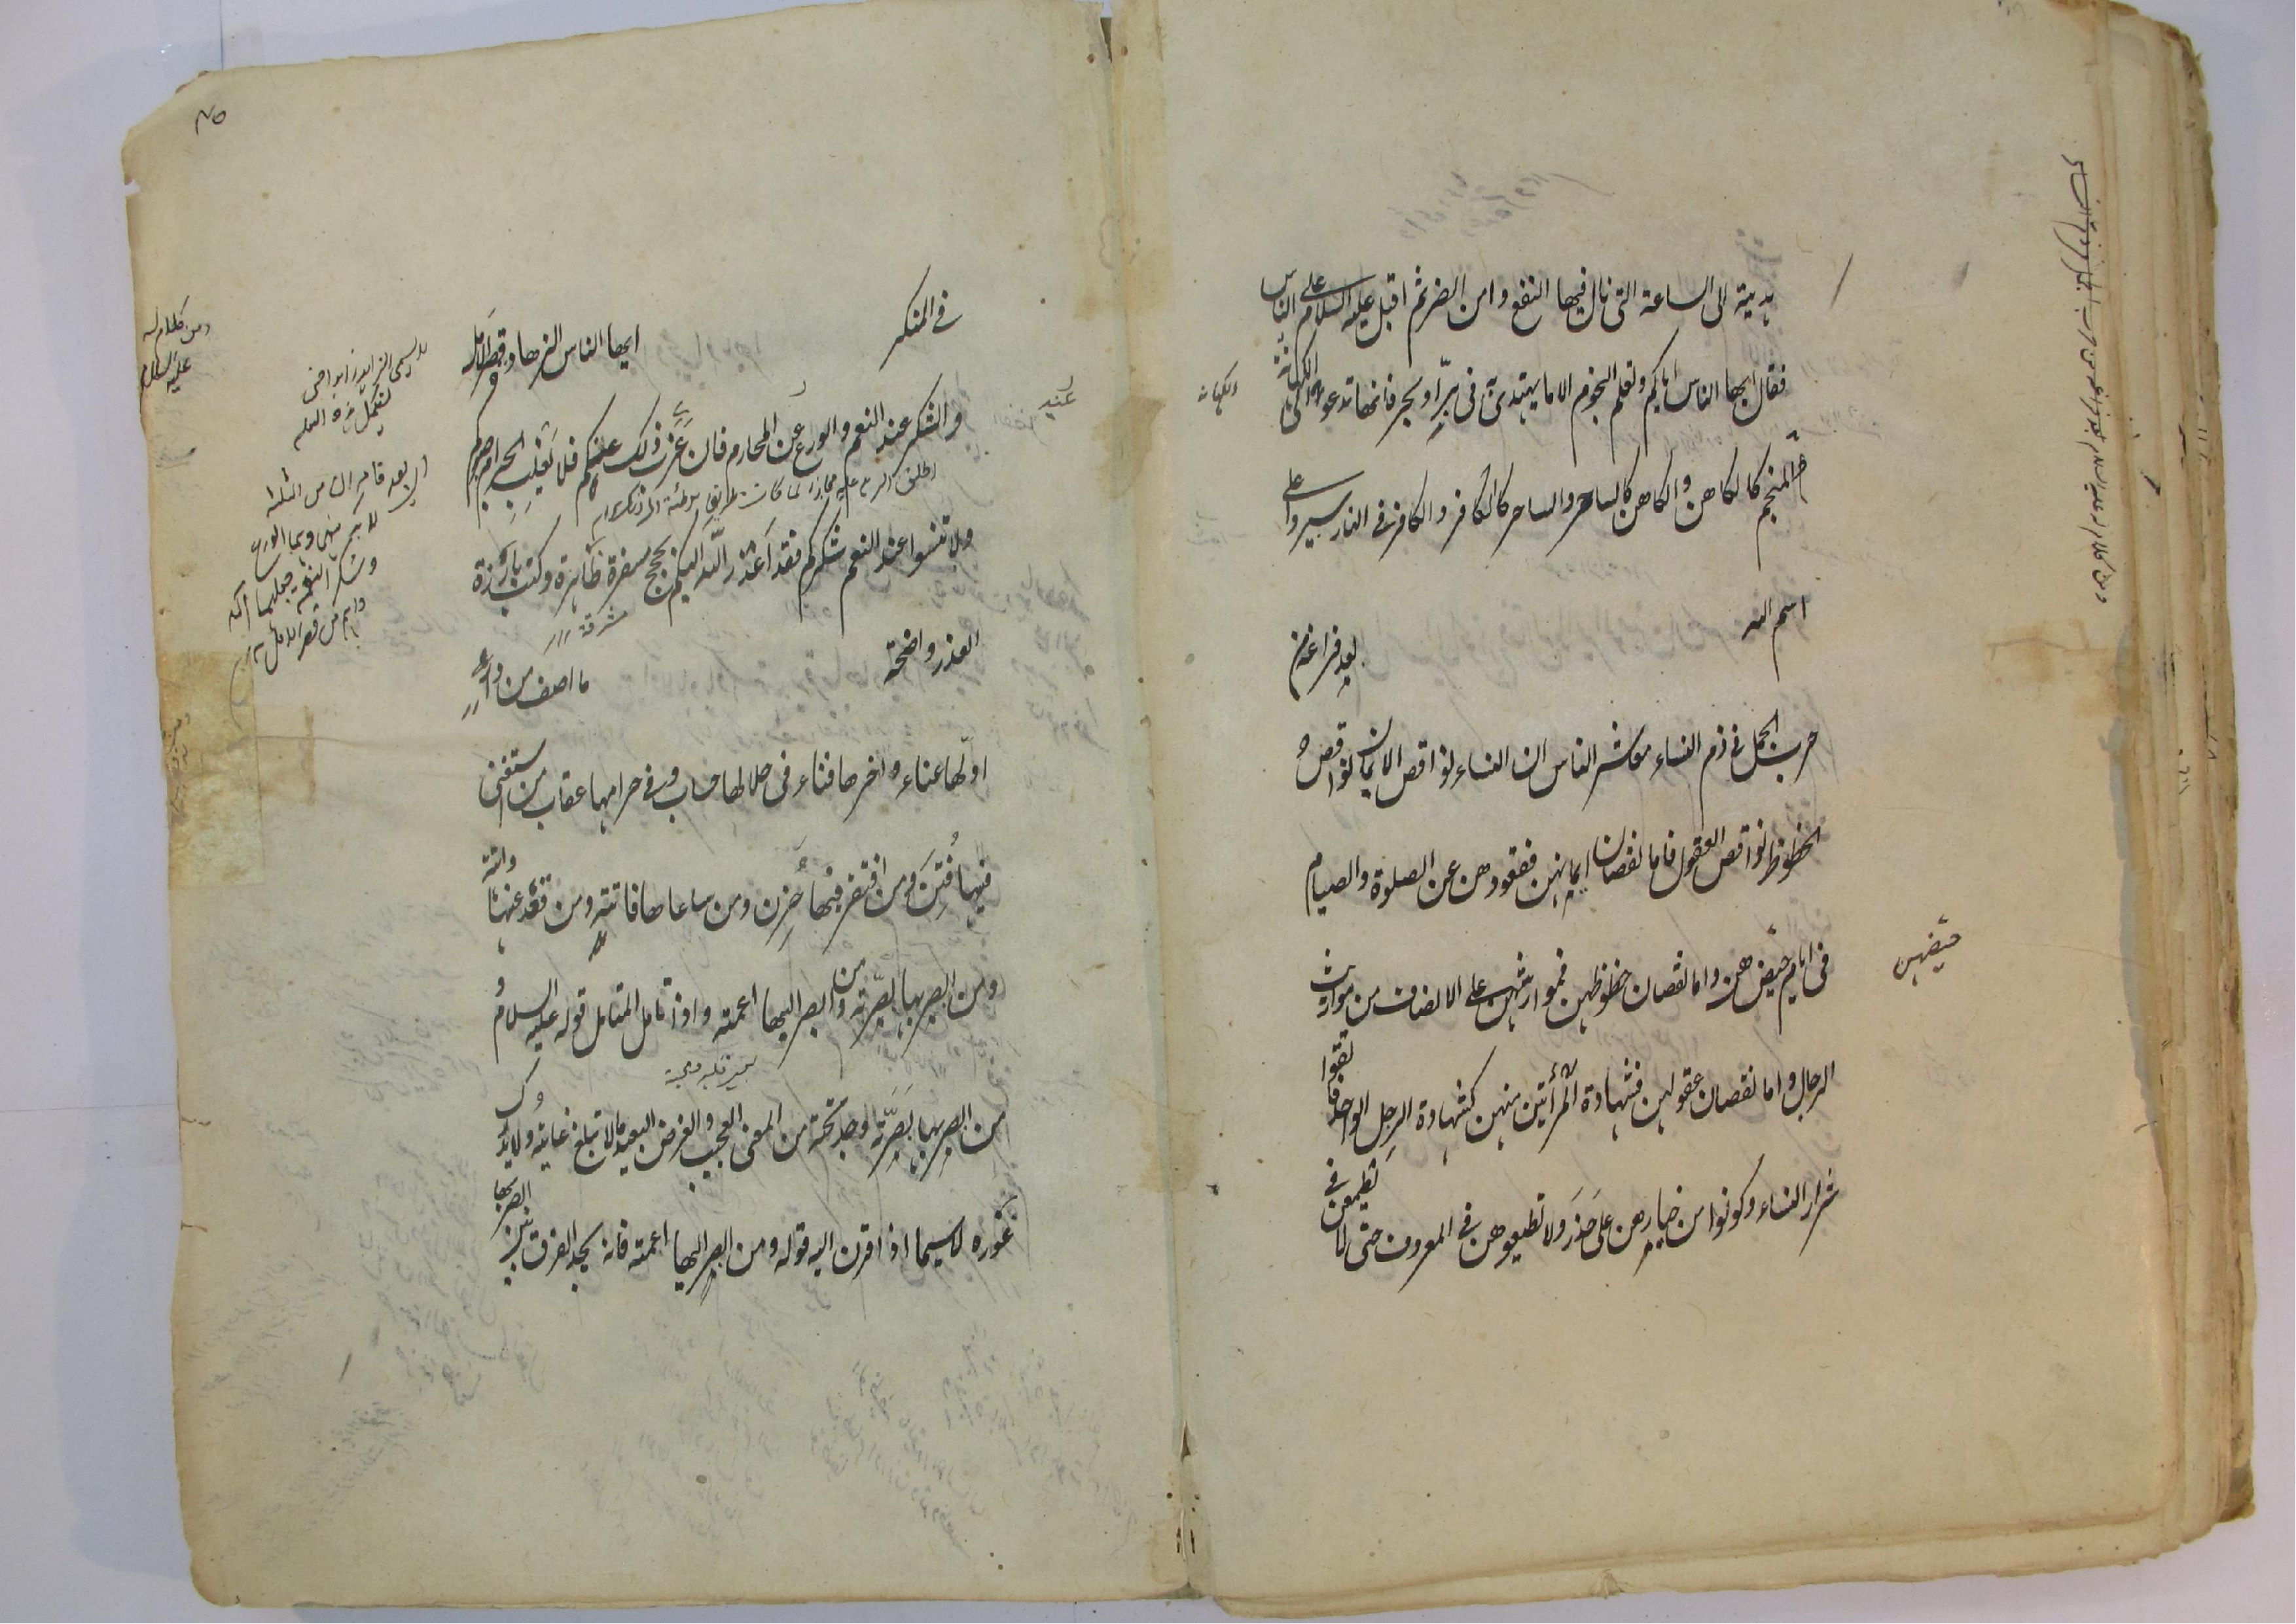 هديته الى الساعة التى نال فيها النفع وامن الضر ثم اقبل عليه السلام على الناس
فقال ايها الناس اياكم وتعلم النجوم الا ما يهتدى به فى برّ او بحر فانها تدعو الى الكهانة
المنجم كالكاهن والكاهن كالساحر والساحر كالكافر والكافر فى النار سيروا على
اسم الله
بعد فراغه من
حرب الجمل فى ذم النساء معاشر الناس ان النساء نواقص الايمان نواقص
الحظوظ نواقص العقول فاما نقصان ايمانهن فقعودهن عن الصلوة والصيام
فى ايام حيضهن واما نقصان حظوظهن فمواريثهن على الانصاف من مواريث
حيضهن
الرجال واما نقصان عقولهن فشهادة امرأتين منهن كشهادة الرجل الواحد فاتقوا
شرار النساء وكونوا من خيارهن على حذر ولا تطيعوهن فى المعروف حتى لا يطمعن فى
فى المنكر
ومن كلام له
عليه السلام
ايها الناس الزهادة قصر الامل
والشكر عند النعم والورع عن المحارم فان عزب ذلك عنكم فلا يغلب الحرام صبركم
ولا تنسوا عند النعم شكركم فقد اعذر الله اليكم بحجج مسفرة ظاهرة وكتب بارزة
مشرقة
العذر واضحة
ما اصف من دار
اولها عناء واخرها فناء فى حلالها حساب وفى حرامها عقاب من استغنى
فيها فُتِنَ ومن افتقر فيها حَزِن ومن ساعاها فاتته ومن قعد عنها واتته
ومن ابصر بها بصّرته ومن ابصر اليها اعمته واذا تامل المتامل قوله عليه السلام و
من ابصر بها بَصَّرَتْه وجد تحته من المعنى العجيب والغرض البعيد ما لا تبلغ غايته ولا يدرك
غوره لا سيما اذا قرن اليه قوله ومن ابصر اليها اعمته فانه يجد الفرق بين ابصر بها